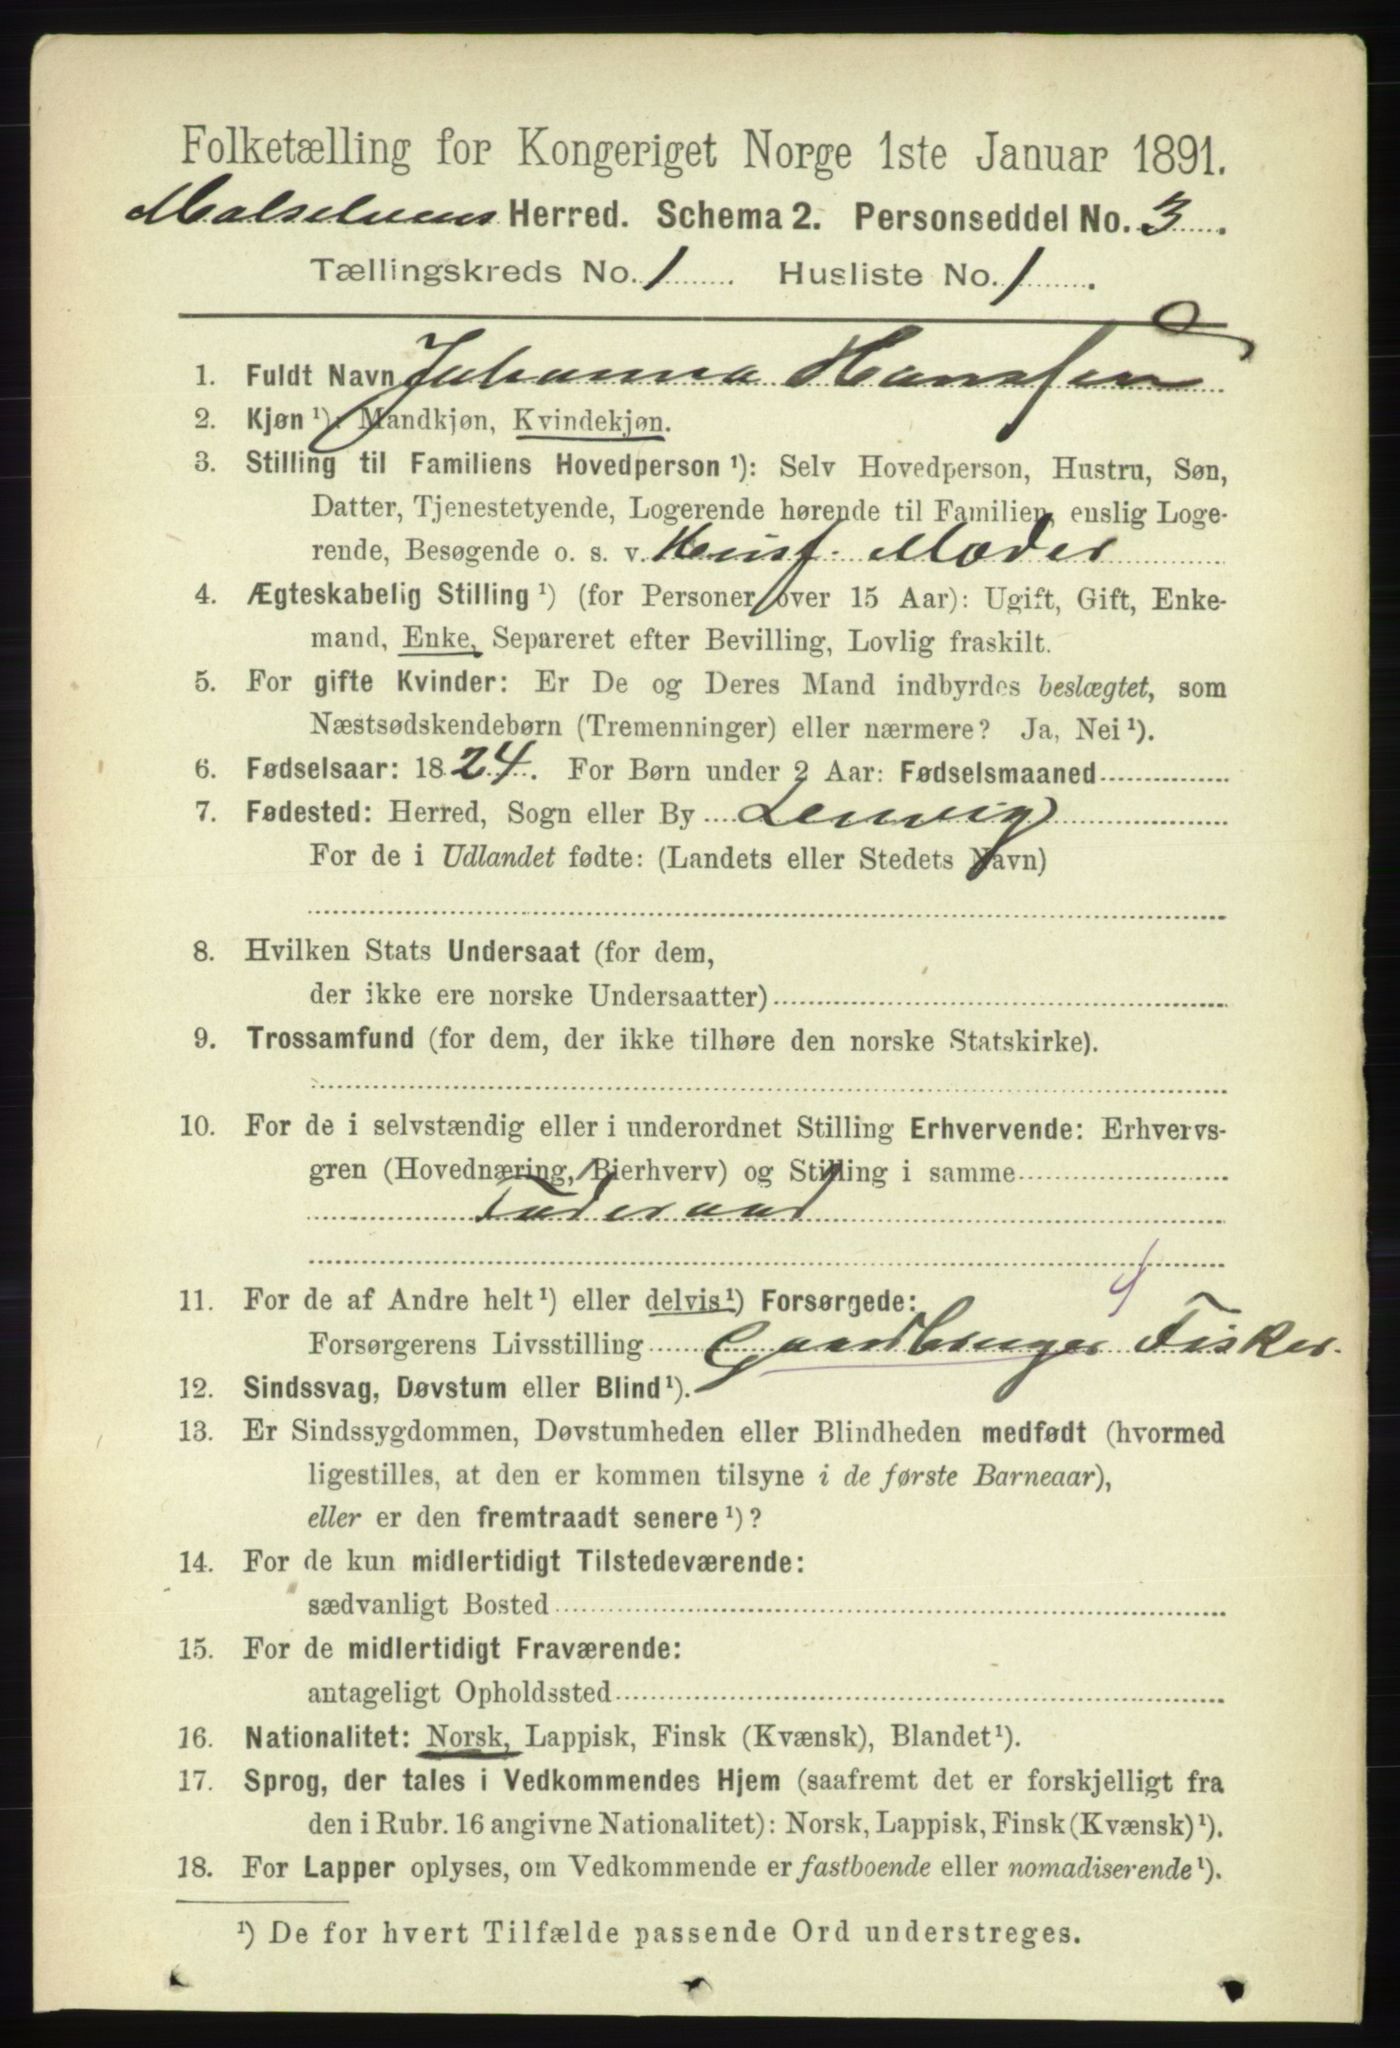 Folketælling for Kongeriget Norge 1ste Januar 1891.
Malselvens Herred. Schema 2. Personseddel No. 3
Tællingskreds No. 1 Husliste No. 1
1. Fuldt Navn Johanna Hansen
2. Kjøn ¹): Mandkjøn, Kvindekjøn.
3. Stilling til Familiens Hovedperson ¹): Selv Hovedperson, Hustru, Søn,
Datter, Tjenestetyende, Logerende hørende til Familien, enslig Loge-
rende, Besøgende o. s. v. Husf. Moder
4. Ægteskabelig Stilling ¹) (for Personer over 15 Aar): Ugift, Gift, Enke-
mand, Enke, Separeret efter Bevilling, Lovlig fraskilt.
5. For gifte Kvinder: Er De og Deres Mand indbyrdes beslægtet, som
Næstsødskendebørn (Tremenninger) eller nærmere? Ja, Nei ¹).
6. Fødselsaar: 1824. For Børn under 2 Aar: Fødselsmaaned
7. Fødested: Herred, Sogn eller By Lenvig
For de i Udlandet fødte: (Landets eller Stedets Navn)
8. Hvilken Stats Undersaat (for dem,
der ikke ere norske Undersaatter)
9. Trossamfund (for dem, der ikke tilhøre den norske Statskirke).
10. For de i selvstændig eller i underordnet Stilling Erhvervende: Erhvervs-
gren (Hovednæring, Bierhverv) og Stilling i samme
Føderaad
4
11. For de af Andre helt ¹) eller delvis ¹) Forsørgede:
Forsørgerens Livsstilling Gaardbruger Fisker.
12. Sindssvag, Døvstum eller Blind ¹).
13. Er Sindssygdommen, Døvstumheden eller Blindheden medfødt (hvormed
ligestilles, at den er kommen tilsyne i de første Barneaar),
eller er den fremtraadt senere ¹)?
14. For de kun midlertidigt Tilstedeværende:
sædvanligt Bosted
15. For de midlertidigt Fraværende:
antageligt Opholdssted
16. Nationalitet: Norsk, Lappisk, Finsk (Kvænsk), Blandet ¹).
17. Sprog, der tales i Vedkommendes Hjem (saafremt det er forskjelligt fra
den i Rubr. 16 angivne Nationalitet): Norsk, Lappisk, Finsk (Kvænsk) ¹).
18. For Lapper oplyses, om Vedkommende er fastboende eller nomadiserende ¹).
¹) De for hvert Tilfælde passende Ord understreges.